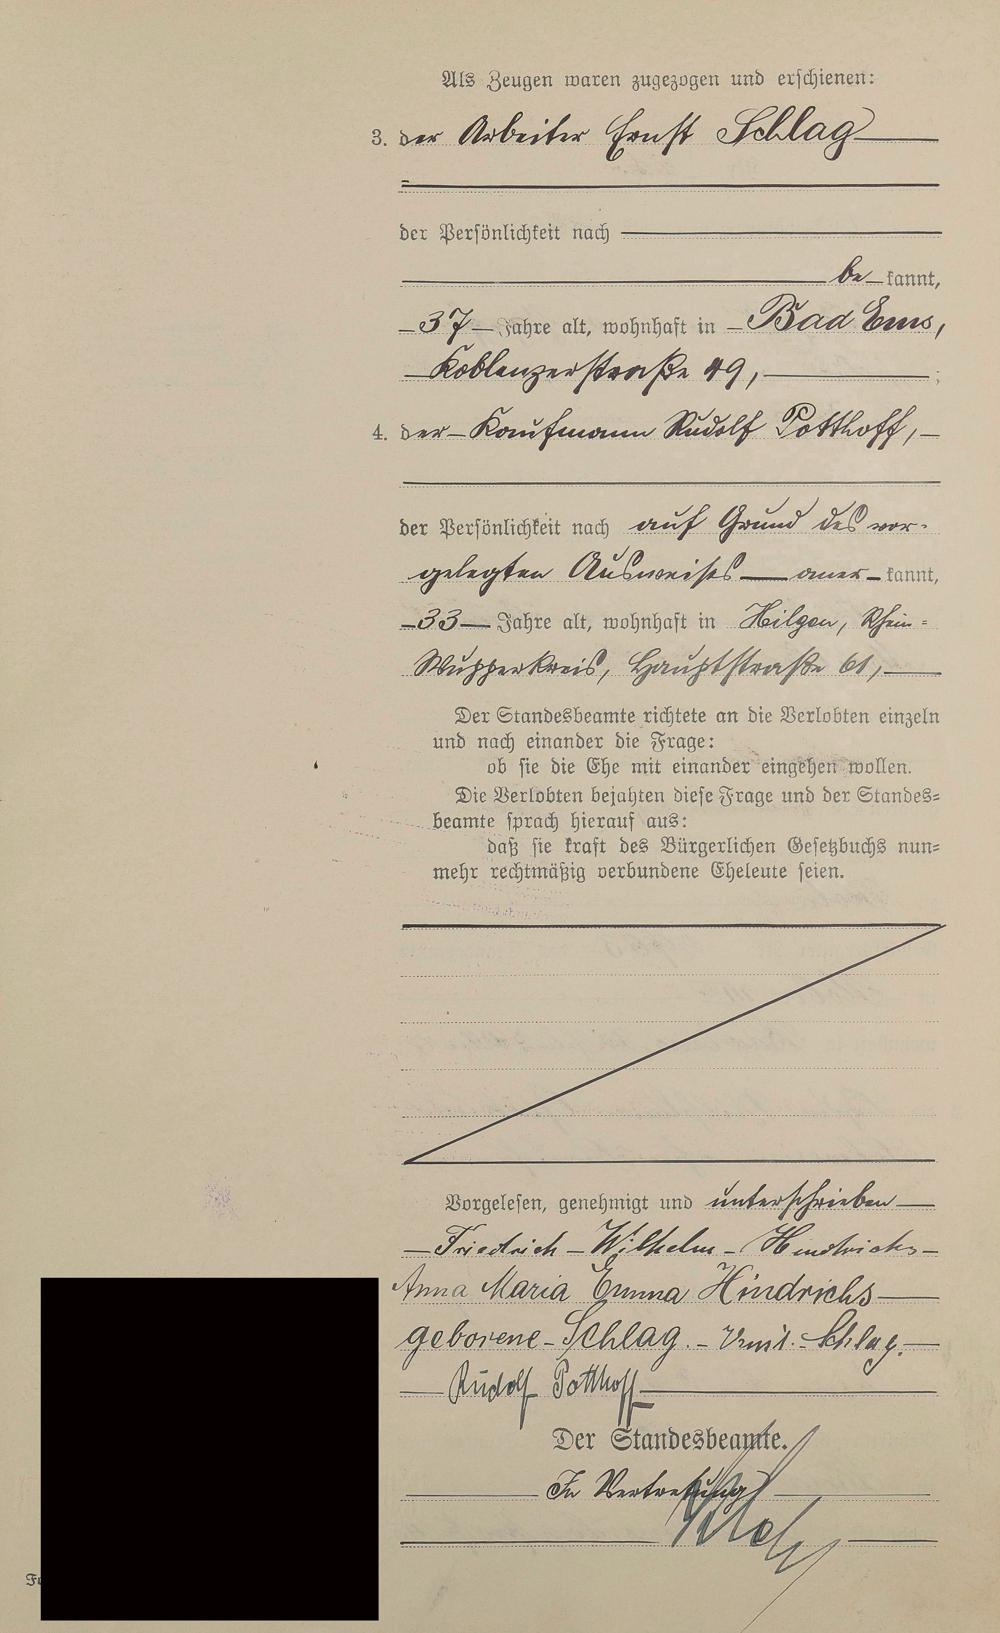 Als Zeugen waren zugezogen und erschienen:
3. der Arbeiter Ernst Schlag
der Persönlichkeit nach
be kannt,
37 Jahre alt, wohnhaft in Bad Ems,
Koblenzerstraße 49, ;
4. der Kaufmann Rudolf Potthoff,
der Persönlichkeit nach auf Grund des vor-
gelegten Ausweises aner kannt,
33 Jahre alt, wohnhaft in Hilgen, Rhein-
Wupperkreis, Hauptstraße 61,
Der Standesbeamte richtete an die Verlobten einzeln
und nach einander die Frage:
ob sie die Ehe mit einander eingehen wollen.
Die Verlobten bejahten diese Frage und der Standes-
beamte sprach hierauf aus:
daß sie kraft des Bürgerlichen Gesetzbuchs nun-
mehr rechtmäßig verbundene Eheleute seien.
Vorgelesen, genehmigt und unterschrieben
Friedrich Wilhelm Hindrichs
Anna Maria Emma Hindrichs
geborene Schlag. Schlag.
Rudolf Potthoff
Der Standesbeamte.
In Vertretung